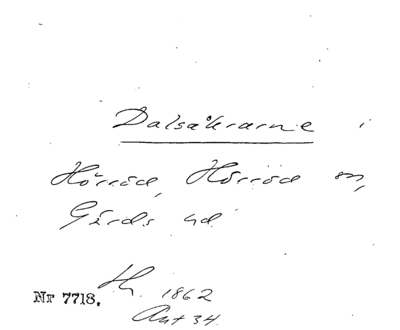 Dalsåkrarne i
Hörröd, Hörröd sn,
Gärds hd
Nr 7718. Th. 1862
Ant 34